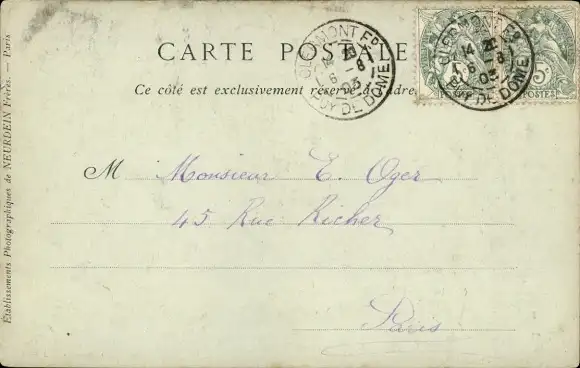 CARTE POSTALE
Ce côté est exclusivement réservé à
M Monsieur E. Oger
45 Rue Richer
Paris
CLERMONT Fd
6 - 8
03
PUY DE DOME
CLERMONT Fd
6 - 8
03
PUY DE DOME
5
POSTES
Établissements Photographiques de NEURDEIN Frères. — Paris